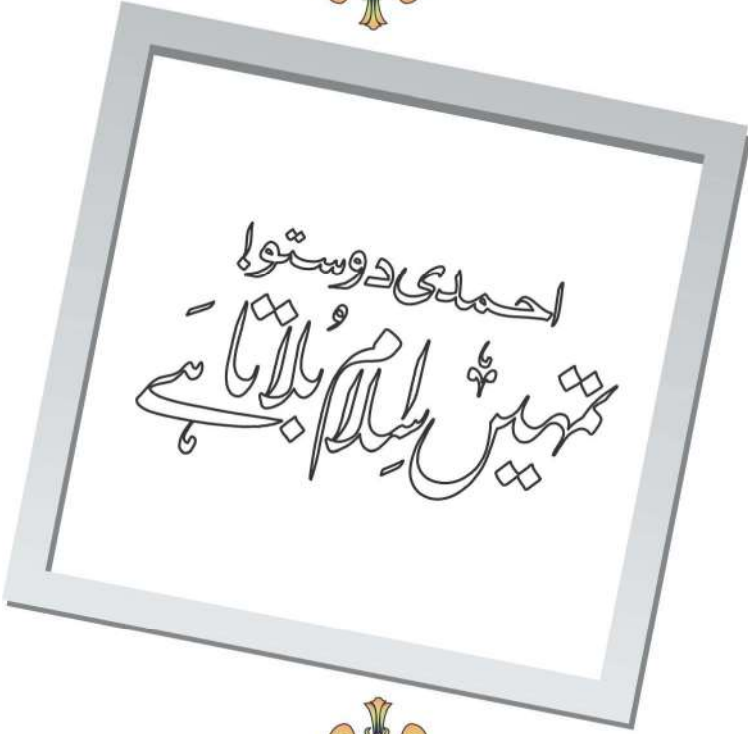 احمدی دوستو!
تمہیں اِسلام بُلاتا ہَے